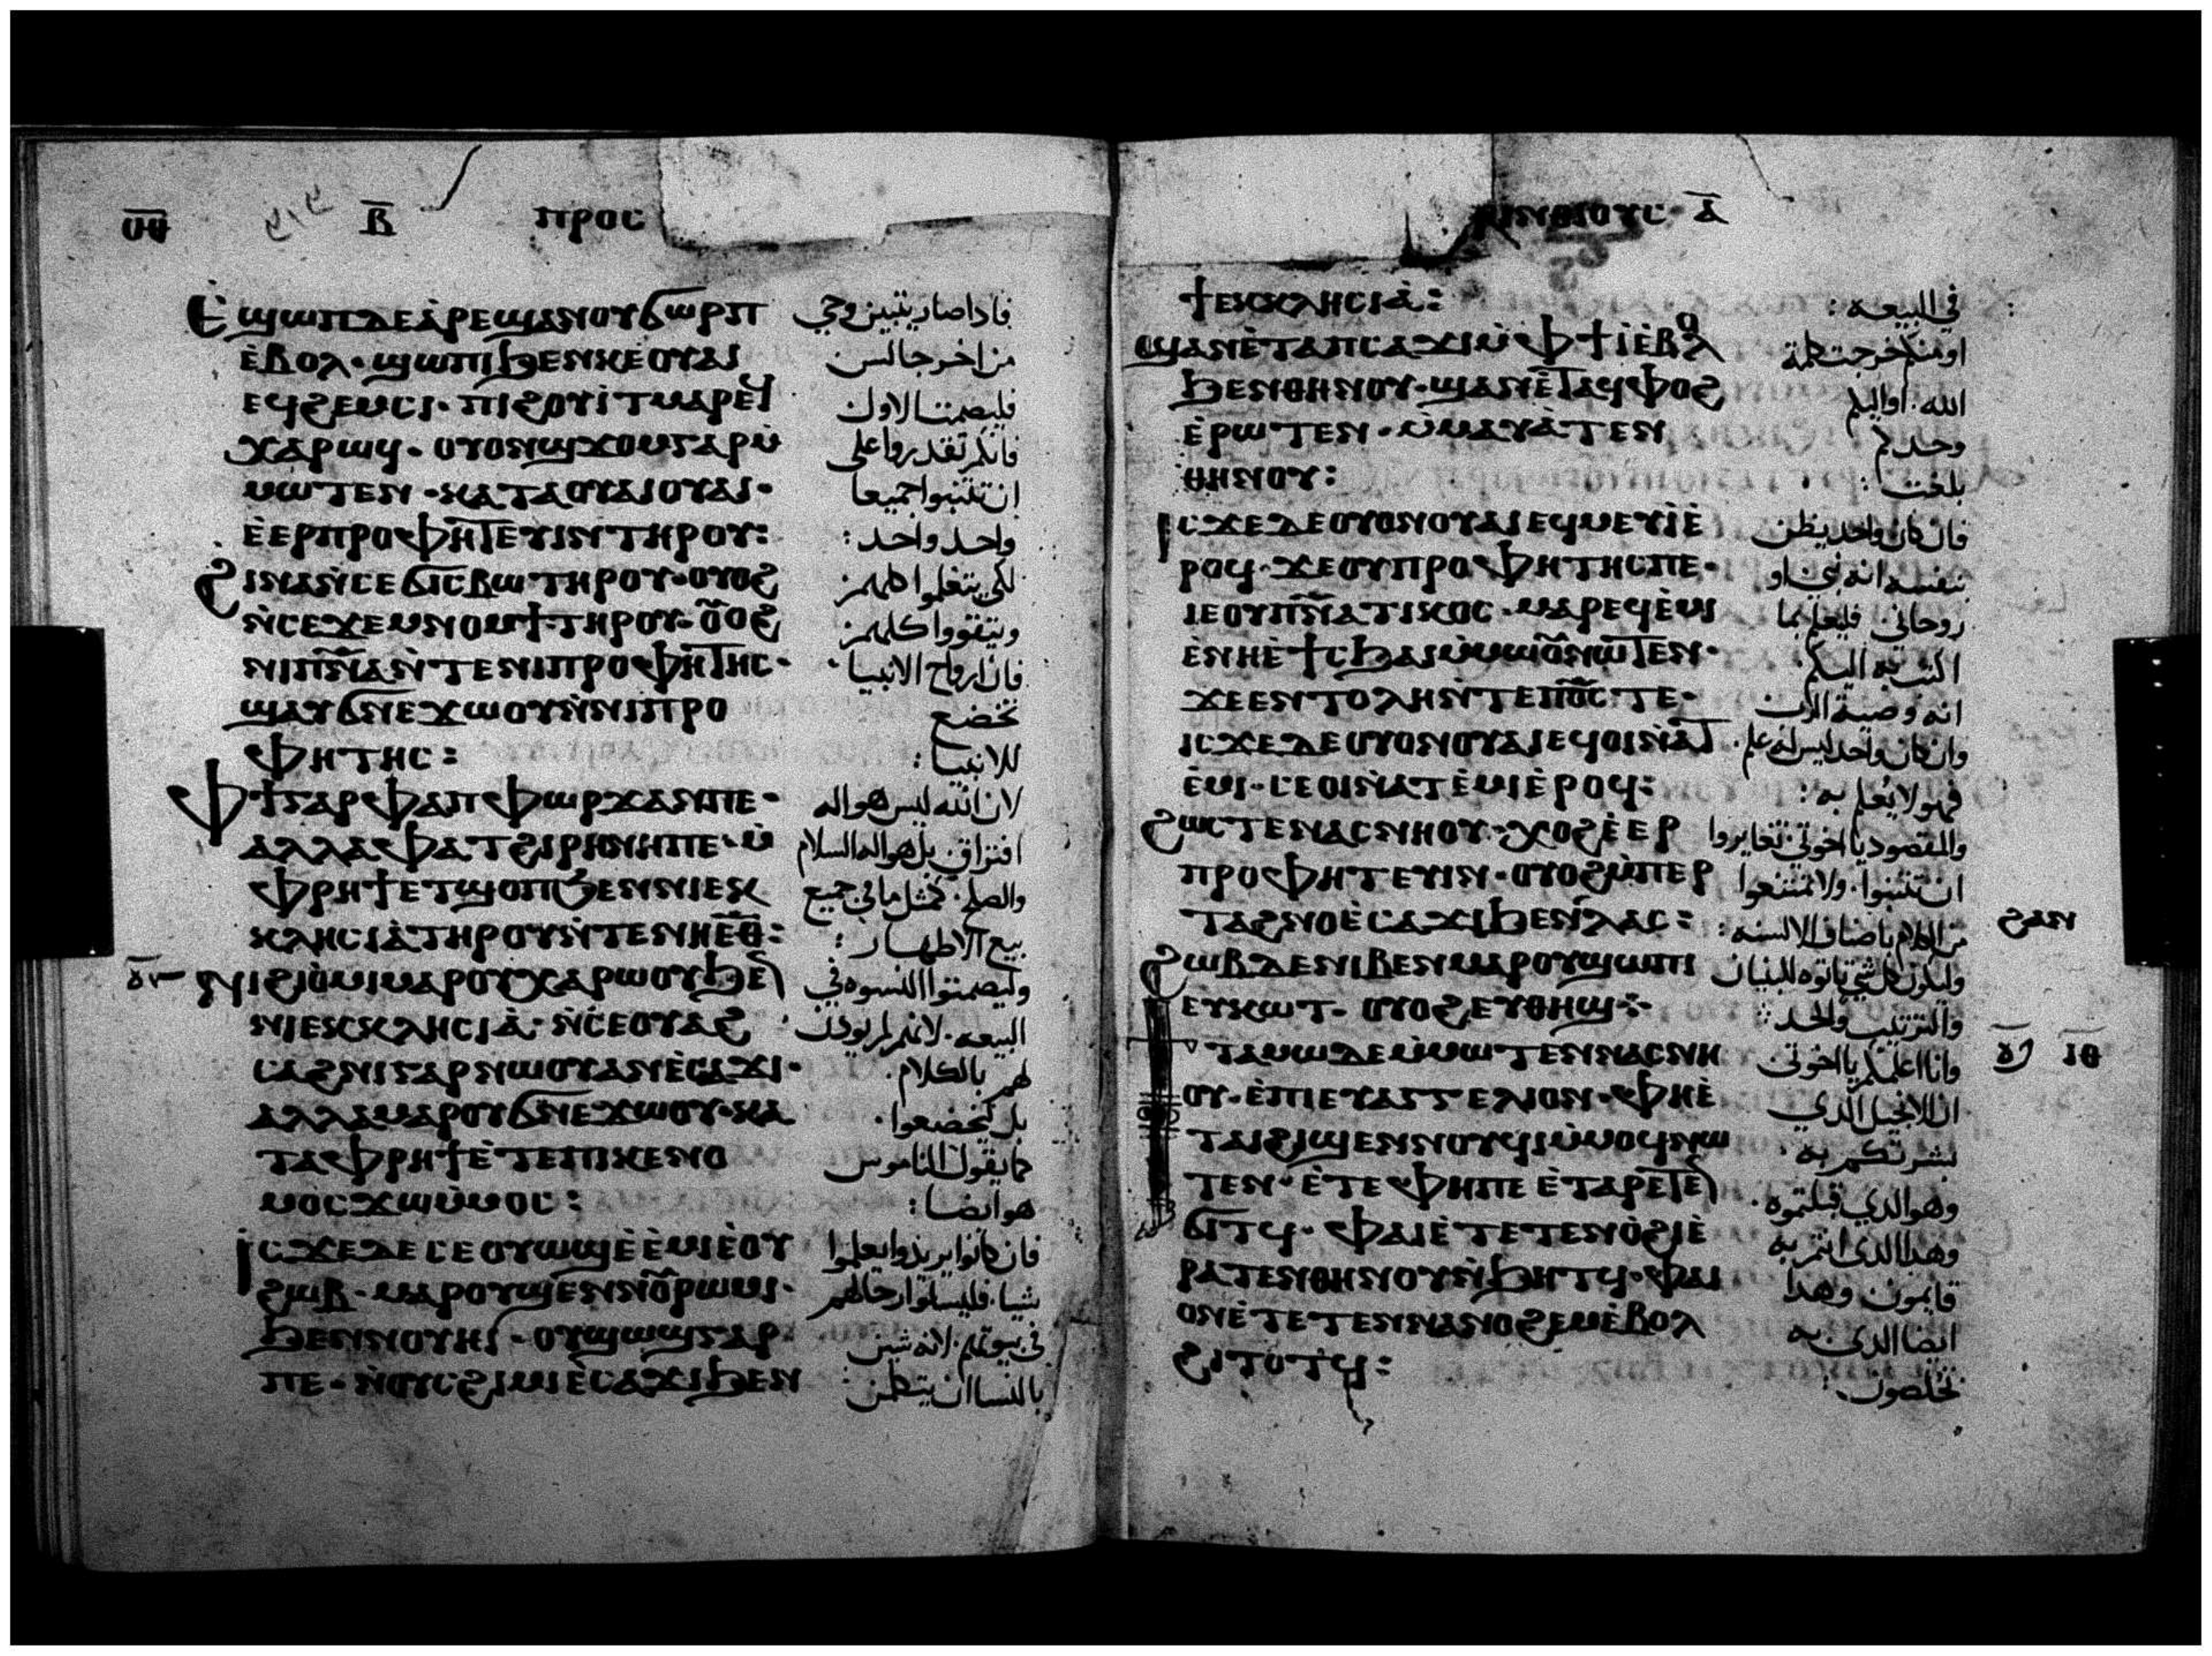 ⲠⲢⲞⲤ
Ⲉ̀ϢⲰⲠⲆⲈⲀ̀ⲢⲈϢⲀⲚⲞⲨϬⲰⲢⲠ
فاداصار يتبين وحي
Ⲉ̀ⲂⲞⲖ· ϢⲰⲠⲒϦⲈⲚⲔⲈⲞⲨⲀⲒ
من اخر جالس
ⲈϤϨⲈⲘⲤⲒ· ⲠⲒϨⲞⲨⲒ̀ⲦⲘⲀⲢⲈϤ
فليصمت الاول
ⲬⲀⲢⲰϤ· ⲞⲨⲞⲚϢϪⲞⲘⲄⲀⲢⲘ̀
فانكم تقدروا على
ⲘⲰⲦⲈⲚ· ⲔⲀⲦⲀⲞⲨⲀⲒⲞⲨⲀⲒ·
ان تتنبوا جميعا
Ⲉ̀ⲈⲢⲠⲢⲞⲪⲎⲦⲈⲨⲒⲚⲦⲎⲢⲞⲨ:
واحد واحد:
ϨⲒⲚⲀⲚ̀ⲤⲈϬⲒⲤⲂⲰⲦⲎⲢⲞⲨ· ⲞⲨⲞϨ
لكي يتعلموا كلهم
Ⲛ̀ⲤⲈϪⲈⲘⲚⲞⲘϮ·ⲦⲎⲢⲞⲨ· ⲞⲞϨ
ويتقووا كلهم
ⲚⲒⲠⲚ̅Ⲁ̅Ⲛ̀ⲦⲈⲚⲒⲠⲢⲞⲪⲎⲦⲎⲤ·
فان ارواح الانبيا·
ϢⲀⲨϬⲚⲈϪⲰⲞⲨⲚ̀ⲚⲒⲠⲢⲞ
تخضع
ⲪⲎⲦⲎⲤ:
للانبيا:
ⲪϮⲄⲀⲢⲪⲀⲠⲪⲰⲢϪⲀⲚⲠⲈ·
لان الله ليس هو اله
ⲀⲖⲖⲀⲪⲀⲦϨⲒⲢⲎⲚⲎⲠⲈ· Ⲙ̀
افتراق بل هو اله السلام
ⲪⲢⲎϮⲈⲦϢⲞⲠϦⲈⲚⲚⲒⲈⲔ
والصلح· كمثل ما في جميع
ⲔⲖⲎⲤⲒⲀ̀ⲦⲎⲢⲞⲨⲚ̀ⲦⲈⲚⲎⲈ̅Ⲑ̅:
بيع الاطهار:
ⲚⲒϨⲒⲞ̀ⲘⲒⲘⲀⲢⲞⲨⲬⲀⲢⲰⲞⲨϦⲈⲚ
وليصمتوا النسوه في
ⲚⲒⲈⲔⲔⲖⲎⲤⲒⲀ̀· Ⲛ̀ⲤⲈⲞⲨⲀϨ
البيعه· لانهم لم يودن
ⲤⲀϨⲚⲒⲄⲀⲢⲚⲰⲞⲨⲀⲚⲈ̀ⲤⲀϪⲒ·
لهم بالكلام·
ⲀⲖⲖⲀⲘⲀⲢⲞⲨϬⲚⲈϪⲰⲞⲨ· ⲔⲀ
بل يخضعوا·
ⲦⲀⲪⲢⲎϮⲈ̀ⲦⲈⲠⲒⲔⲈⲚⲞ
كما يقول الناموس
ⲘⲞⲤϪⲰⲘ̀ⲘⲞⲤ:
هو ايضا:
ⲒⲤϪⲈⲆⲈⲤⲈⲞⲨⲰϢⲈ̀Ⲉ̀ⲘⲒⲈ̀ⲞⲨ
فان كانوا يريدوا يعلموا
ϨⲰⲂ· ⲘⲀⲢⲞⲨϢⲈⲚⲚⲞⲨⲢⲰⲘⲒ·
شيا· فليسلوا رجالهم
ϦⲈⲚⲚⲞⲨⲎⲒ· ⲞⲨϢⲰϢⲄⲀⲢ
في بيوتهم· لانه شين
ⲠⲈ· Ⲛ̀ⲞⲨⲤϨⲒⲘⲒⲈ̀ⲤⲀϪⲒϦⲈⲚ
بالنسا ان يتكلمن
ⲢⲒⲚⲐⲒⲞⲨⲤ· Ⲁ̅
ϮⲈⲔⲔⲖⲎⲤⲒⲀ̀:
في البيعه:
ϢⲀⲚⲈ̀ⲦⲀⲠⲤⲀϪⲒⲘ̀ⲪϮⲒ̀Ⲉ̀ⲂⲞⲖ
او منكم خرجت كلمة
ϦⲈⲚⲐⲎⲚⲞⲨ· ϢⲀⲚⲈ̀ⲦⲀϤⲪⲞϨ
الله· او اليكم
Ⲉ̀ⲢⲰⲦⲈⲚ· Ⲙ̀ⲘⲀⲨⲀ̀ⲦⲈⲚ
وحدكم
ⲐⲎⲚⲞⲨ:
بلغت:
ⲒⲤϪⲈⲆⲈⲞⲨⲞⲚⲞⲨⲀⲒⲈϤⲘⲈⲨⲒ̀Ⲉ̀
فان كان واحد يظن
ⲢⲞϤ· ϪⲈⲞⲨⲠⲢⲞⲪⲎⲦⲎⲤⲠⲈ·
بنفسه انه نبي او
ⲒⲈⲞⲨⲠⲚ̅Ⲁ̅ⲦⲒⲔⲞⲤ· ⲘⲀⲢⲈϤⲈ̀ⲘⲒ
روحاني فليعلم بما
Ⲉ̀ⲚⲎⲈ̀ϮⲤϦⲀⲒⲘ̀ⲘⲰⲞⲨⲚⲰⲦⲈⲚ·
اكتب به اليكم·
ϪⲈⲈⲚⲦⲞⲖⲎⲚ̀ⲦⲈⲠ̅Ⲟ̅Ⲥ̅ⲦⲈ·
انه وصية الرب
ⲒⲤϪⲈⲆⲈⲞⲨⲞⲚⲞⲨⲀⲒⲈϤⲞⲒⲚ̀ⲀⲦ
وان كان واحد ليس له علم·
Ⲉ̀ⲘⲒ· ⲤⲈⲞⲒⲚ̀ⲀⲦⲈ̀ⲘⲒⲈ̀ⲢⲞϤ:
فهو لا يعلم به:
ϨⲰⲤⲦⲈⲚⲀⲤⲚⲎⲞⲨ· ⲬⲞϨⲈ̀ⲈⲢ
والمقصود يا اخوتي تغايروا
ⲠⲢⲞⲪⲎⲦⲈⲨⲒⲚ· ⲞⲨⲞϨⲘ̀ⲠⲈⲢ
ان تتنبوا· ولا تمتنعوا
ⲦⲀϨⲚⲞⲈ̀ⲤⲀϪⲒϦⲈⲚⲖⲀⲤ:
من الكلام باصناف الالسنه:
ϨⲀⲚ
ϨⲰⲂⲆⲈⲚⲒⲂⲈⲚⲘⲀⲢⲞⲨϢⲰⲠⲒ
وليكون كل شي تاتوه للبنيان
ⲈⲨⲔⲰⲦ· ⲞⲨⲞϨⲈⲨⲐⲎϢ
والترتيب والحد
ⲦⲀⲘⲰⲆⲈⲘ̀ⲘⲰⲦⲈⲚⲚⲀⲤⲚⲎ
وانا اعلمكم يا اخوتي
ⲞⲨ· Ⲉ̀ⲠⲒⲈⲨⲀⲄⲄⲈⲖⲒⲞⲚ· ⲪⲎⲈ̀
ان الانجيل الدي
ⲦⲀⲒϨⲒϢⲈⲚⲚⲞⲨϤⲒⲘ̀ⲘⲞϤⲚⲰ
بشرتكم به·
ⲦⲈⲚ· Ⲉ̀ⲦⲈⲪⲎⲠⲈⲈ̀ⲦⲀⲢⲈⲦⲈⲚ
وهو الدي قبلتموه·
ϬⲒⲦϤ· ⲪⲀⲒⲈ̀ⲦⲈⲦⲈⲚⲞ̀ϨⲒⲈ̀
وهدا الدي انتم به
ⲢⲀⲦⲈⲚⲐⲎⲚⲞⲨⲚ̀ϦⲎⲦϤ· ⲪⲀⲒ
قايمون وهدا
ⲞⲚⲈ̀ⲦⲈⲦⲈⲚⲚⲀⲚⲞϨⲈⲘⲈ̀ⲂⲞⲖ
ايضا الدي به
ϨⲒⲦⲞⲦϤ:
تخلصون: